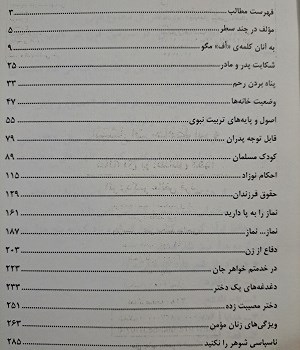 فهرست مطالب ........ ۳
مؤلف در چند سطر ........ ۵
به آنان کلمه‌ی «اُف» مگو ........ ۹
شکایت پدر و مادر ........ ۲۵
پناه بردن رحم ........ ۳۳
وضعیت خانه‌ها ........ ۴۷
اصول و پایه‌های تربیت نبوی ........ ۵۵
قابل توجه پدران ........ ۷۹
کودک مسلمان ........ ۸۹
احکام نوزاد ........ ۱۱۵
حقوق فرزندان ........ ۱۳۹
نماز را به پا دارید ........ ۱۶۱
نماز... نماز ........ ۱۸۷
دفاع از زن ........ ۲۰۳
در خدمتم خواهر جان ........ ۲۲۳
دغدغه‌های یک دختر ........ ۲۳۳
دختر مصیبت زده ........ ۲۵۱
ویژگی‌های زنان مؤمن ........ ۲۶۳
ناسپاسی شوهر را نکنید ........ ۲۸۵